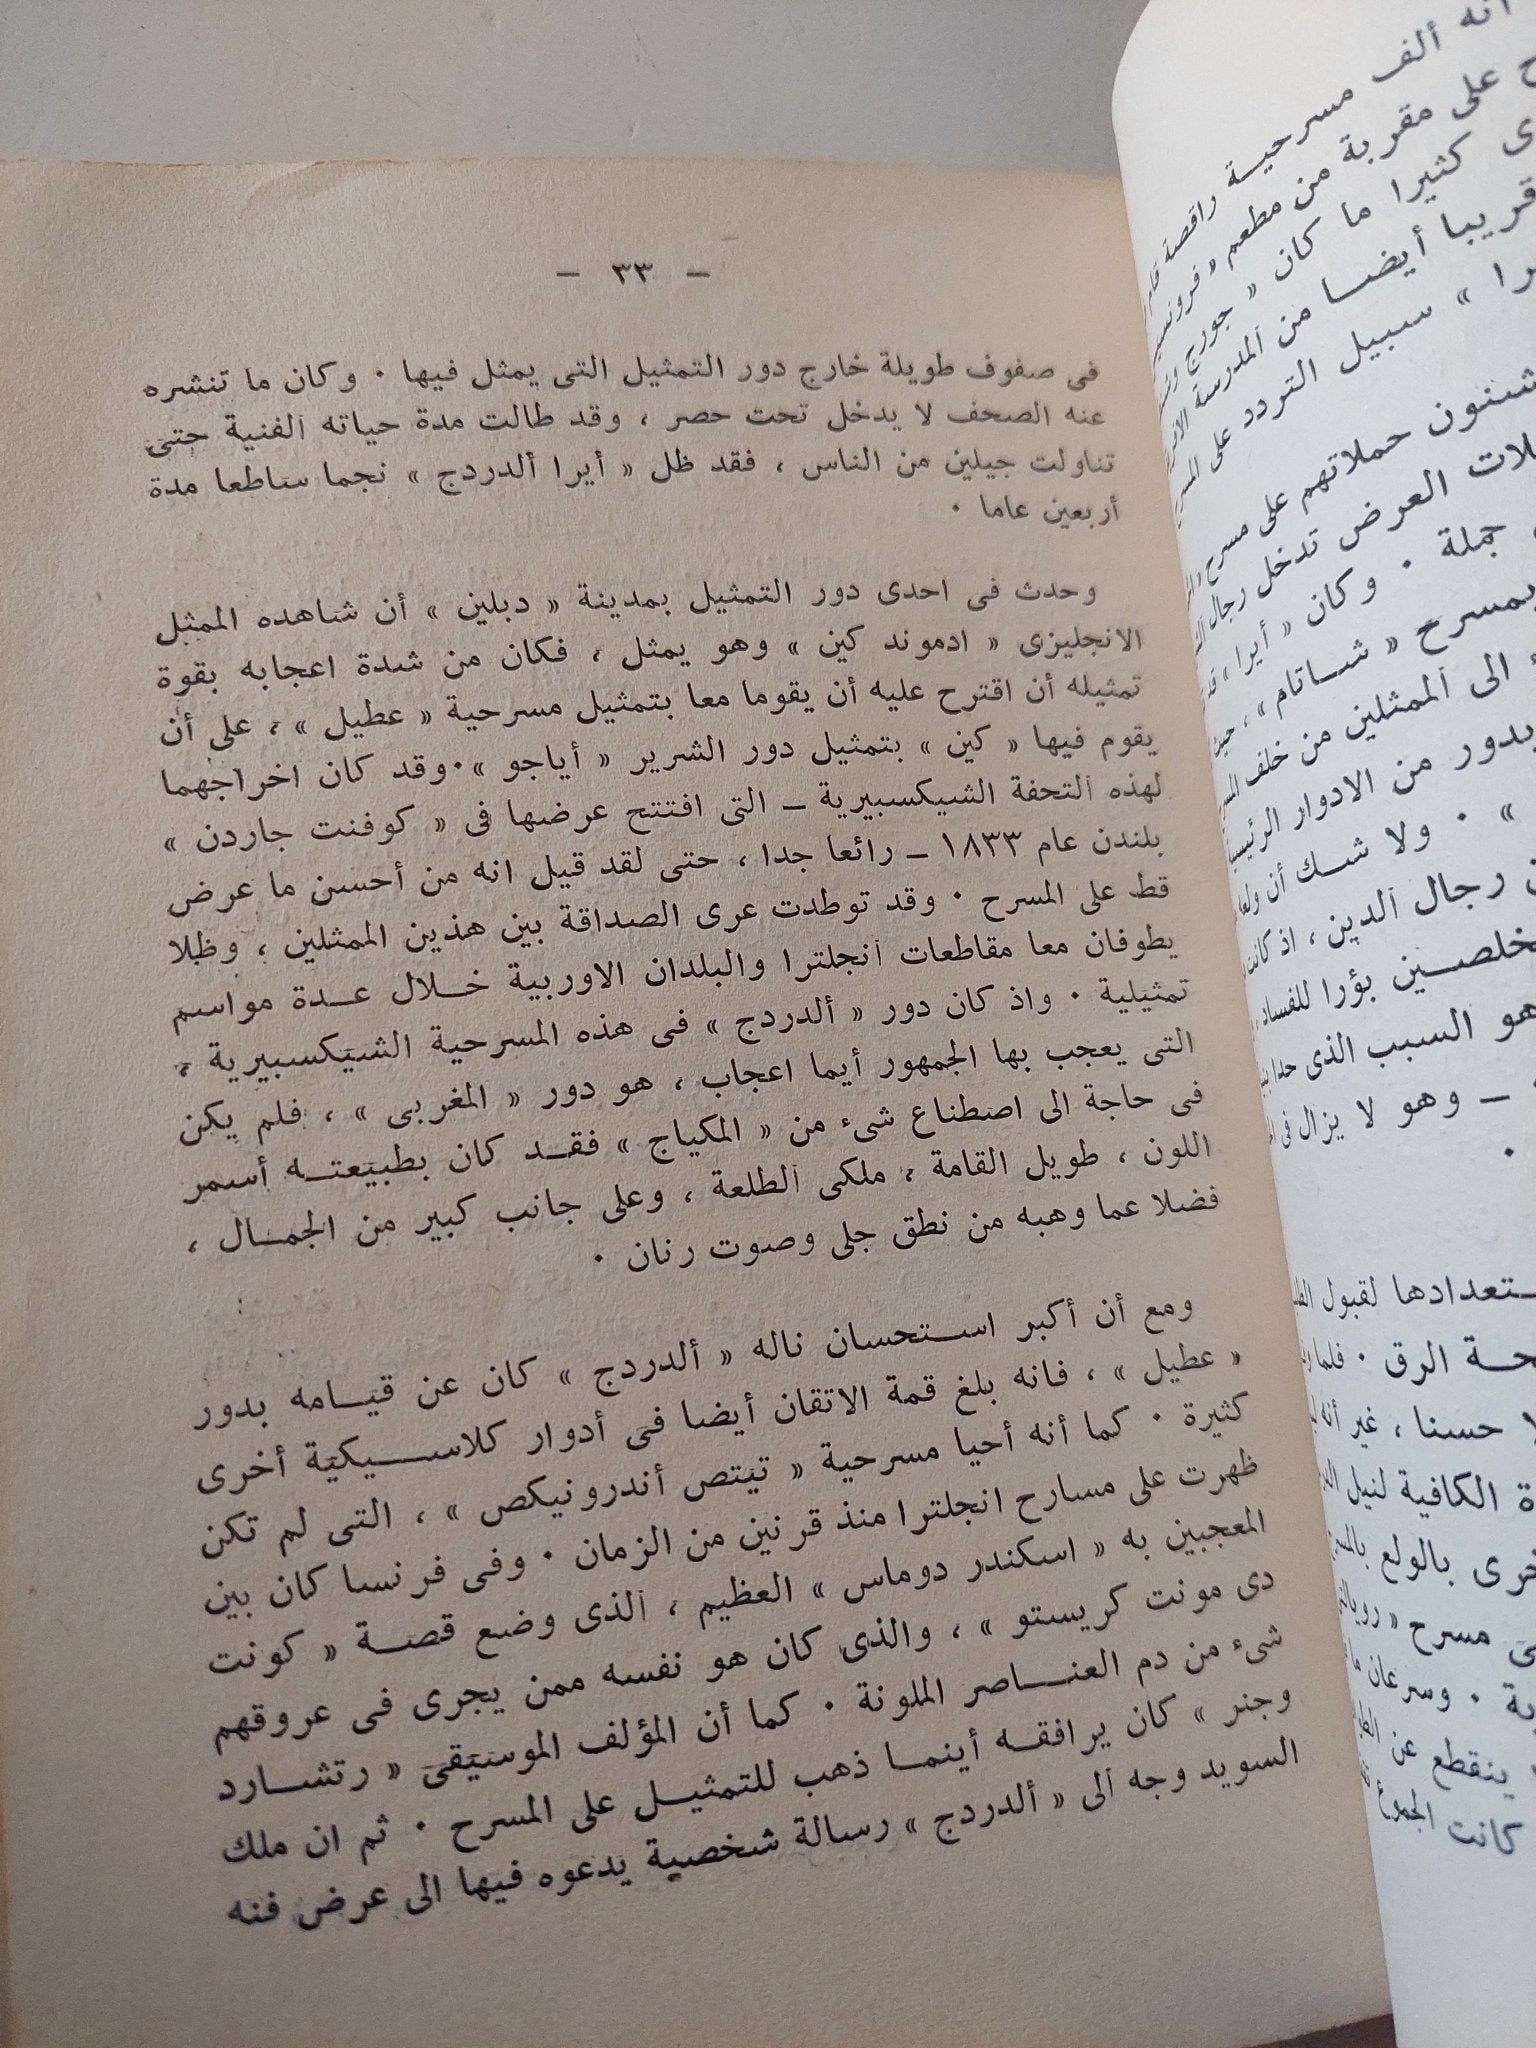 أنه ألف مسرحية راقصة
على مقربة من مطعم «
كثيرا ما كان « جورج
قريبا أيضا من المدرسة
» سبيل التردد على
يشنون حملاتهم على مسرح
العرض تدخل رجال
جملة . وكان « أيرا »
بمسرح « شاتام » ، حيث
الى الممثلين من خلف
بدور من الادوار
» . ولا شك أن
رجال الدين ، اذ كانت
بؤرا للفساد
هو السبب الذى حدا
– وهو لا يزال فى
لقبول
الرق . فلما
حسنا ، غير أنه
الكافية لنيل
بالولع
مسرح «
وسرعان ما
ينقطع عن
كانت الجموع
– ٣٣ –
فى صفوف طويلة خارج دور التمثيل التى يمثل فيها . وكان ما تنشره
عنه الصحف لا يدخل تحت حصر ، وقد طالت مدة حياته الفنية حتى
تناولت جيلين من الناس ، فقد ظل « أيرا ألدردج » نجما ساطعا مدة
أربعين عاما .
وحدث فى احدى دور التمثيل بمدينة « دبلين » أن شاهده الممثل
الانجليزى « ادموند كين » وهو يمثل ، فكان من شدة اعجابه بقوة
تمثيله أن اقترح عليه أن يقوما معا بتمثيل مسرحية « عطيل » ، على أن
يقوم فيها « كين » بتمثيل دور الشرير « أياجو » . وقد كان اخراجهما
لهذه التحفة الشيكسبيرية – التى افتتح عرضها فى « كوفنت جاردن »
بلندن عام ١٨٣٣ – رائعا جدا ، حتى لقد قيل انه من أحسن ما عرض
قط على المسرح . وقد توطدت عرى الصداقة بين هذين الممثلين ، وظلا
يطوفان معا مقاطعات انجلترا والبلدان الاوربية خلال عدة مواسم
تمثيلية . واذ كان دور « ألدردج » فى هذه المسرحية الشيكسبيرية ،
التى يعجب بها الجمهور أيما اعجاب ، هو دور « المغربى » ، فلم يكن
فى حاجة الى اصطناع شىء من « المكياج » فقد كان بطبيعته أسمر
اللون ، طويل القامة ، ملكى الطلعة ، وعلى جانب كبير من الجمال ،
فضلا عما وهبه من نطق جلى وصوت رنان .
ومع أن أكبر استحسان ناله « ألدردج » كان عن قيامه بدور
« عطيل » ، فانه بلغ قمة الاتقان أيضا فى أدوار كلاسيكية أخرى
كثيرة . كما أنه أحيا مسرحية « تيتص أندرونيكص » ، التى لم تكن
ظهرت على مسارح انجلترا منذ قرنين من الزمان . وفى فرنسا كان بين
المعجبين به « اسكندر دوماس » العظيم ، الذى وضع قصة « كونت
دى مونت كريستو » ، والذى كان هو نفسه ممن يجرى فى عروقهم
شىء من دم العناصر الملونة . كما أن المؤلف الموسيقى « رتشارد
وجنر » كان يرافقه أينما ذهب للتمثيل على المسرح . ثم ان ملك
السويد وجه الى « ألدردج » رسالة شخصية يدعوه فيها الى عرض فنه